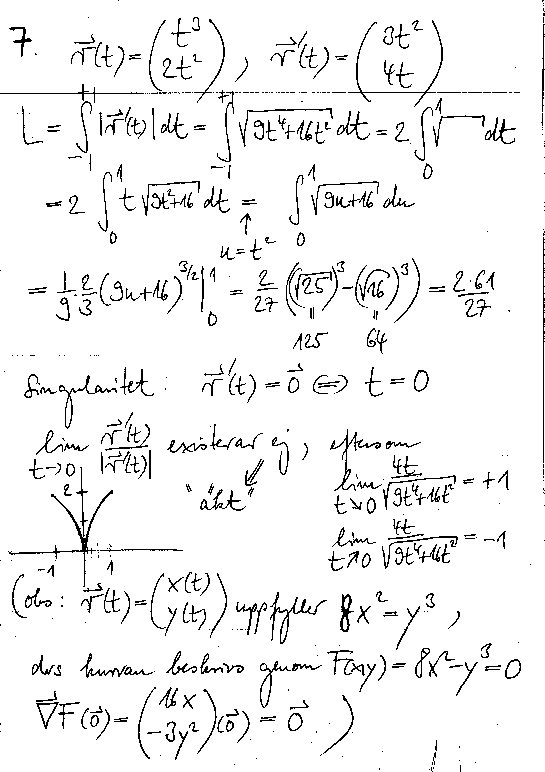 7. r⃗(t) = (t³ 2t²), r⃗'(t) = (3t² 4t)
L = ∫₋₁⁺¹ |r⃗'(t)| dt = ∫₋₁⁺¹ √(9t⁴+16t²) dt = 2 ∫₀¹ √ dt
= 2 ∫₀¹ t √(9t²+16) dt = ∫₀¹ √(9u+16) du
↑
u = t²
= 1/9 · 2/3 (9u+16)^{3/2} |₀¹ = 2/27 ((√25)³ − (√16)³) = 2·61/27.
125 64
Singularitet: r⃗'(t) = 0⃗ ⇔ t = 0
lim t→0 r⃗'(t)/|r⃗'(t)| existerar ej, eftersom
"äkt"
lim t↘0 4t/√(9t⁴+16t²) = +1
lim t↗0 4t/√(9t⁴+16t²) = −1
2
-1 1
(obs: r⃗(t) = (x(t) y(t)) uppfyller 8x² = y³,
dvs kurvan beskrivs genom F(x,y) = 8x² − y³ = 0
∇⃗F(0⃗) = (16x −3y²)(0⃗) = 0⃗ )